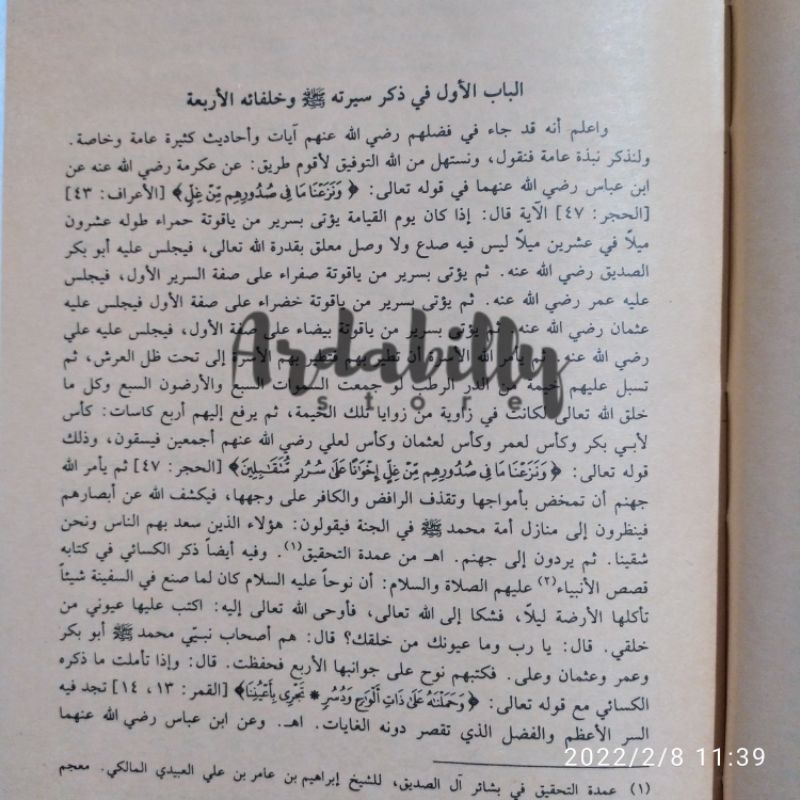 الباب الأول في ذكر سيرته ﷺ وخلفائه الأربعة
واعلم أنه قد جاء في فضلهم رضي الله عنهم آيات وأحاديث كثيرة عامة وخاصة.
ولنذكر نبذة عامة فنقول، ونستهل من الله التوفيق لأقوم طريق: عن عكرمة رضي الله عنه عن
ابن عباس رضي الله عنهما في قوله تعالى: ﴿وَنَزَعْنَا مَا فِي صُدُورِهِم مِّنْ غِلٍّ﴾ [الأعراف: ٤٣]
[الحجر: ٤٧] الآية قال: إذا كان يوم القيامة يؤتى بسرير من ياقوتة حمراء طوله عشرون
ميلاً في عشرين ميلاً ليس فيه صدع ولا وصل معلق بقدرة الله تعالى، فيجلس عليه أبو بكر
الصديق رضي الله عنه. ثم يؤتى بسرير من ياقوتة صفراء على صفة السرير الأول، فيجلس
عليه عمر رضي الله عنه. ثم يؤتى بسرير من ياقوتة خضراء على صفة الأول فيجلس عليه
عثمان رضي الله عنه. ثم يؤتى بسرير من ياقوتة بيضاء على صفة الأول، فيجلس عليه علي
رضي الله عنه. ثم يأمر الله الأسرة أن تطير بهم فتطير بهم الأسرة إلى تحت ظل العرش، ثم
تسبل عليهم خيمة من الدر الرطب لو جمعت السموات السبع والأرضون السبع وكل ما
خلق الله تعالى لكانت في زاوية من زوايا تلك الخيمة، ثم يرفع إليهم أربع كاسات: كأس
لأبي بكر وكأس لعمر وكأس لعثمان وكأس لعلي رضي الله عنهم أجمعين فيسقون، وذلك
قوله تعالى: ﴿وَنَزَعْنَا مَا فِي صُدُورِهِم مِّنْ غِلٍّ إِخْوَانًا عَلَىٰ سُرُرٍ مُّتَقَابِلِينَ﴾ [الحجر: ٤٧] ثم يأمر الله
جهنم أن تمخض بأمواجها وتقذف الرافض والكافر على وجهها، فيكشف الله عن أبصارهم
فينظرون إلى منازل أمة محمد ﷺ في الجنة فيقولون: هؤلاء الذين سعد بهم الناس ونحن
شقينا. ثم يردون إلى جهنم. اهـ من عمدة التحقيق(١). وفيه أيضاً ذكر الكسائي في كتابه
قصص الأنبياء(٢) عليهم الصلاة والسلام: أن نوحاً عليه السلام كان لما صنع في السفينة شيئاً
تأكلها الأرضة ليلاً، فشكا إلى الله تعالى، فأوحى الله تعالى إليه: اكتب عليها عيوني من
خلقي. قال: يا رب وما عيونك من خلقك؟ قال: هم أصحاب نبيّي محمد ﷺ أبو بكر
وعمر وعثمان وعلى. فكتبهم نوح على جوانبها الأربع فحفظت. قال: وإذا تأملت ما ذكره
الكسائي مع قوله تعالى: ﴿وَحَمَلْنَاهُ عَلَىٰ ذَاتِ أَلْوَاحٍ وَدُسُرٍ * تَجْرِي بِأَعْيُنِنَا﴾ [القمر: ١٣، ١٤] تجد فيه
السر الأعظم والفضل الذي تقصر دونه الغايات. اهـ. وعن ابن عباس رضي الله عنهما
(١) عمدة التحقيق في بشائر آل الصديق، للشيخ إبراهيم بن عامر بن علي العبيدي المالكي. معجم
Ardabilly
store
2022/2/8 11:39